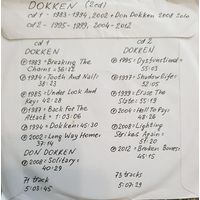 DOKKEN (2cd)
cd 1 - 1983-1994, 2002 + Don Dokken 2008 Solo
cd 2 - 1995-1999, 2004-2012
cd 1
DOKKEN
Ⓟ 1983: Breaking The
Chains = 36:22
Ⓟ 1984: Tooth And Nail:
38:23
Ⓟ 1985: Under Lock And
Key: 42:28
Ⓟ 1987: Back For The
Attack = 1:03:06
Ⓟ 1994: Dokken = 45:30
Ⓟ 2002: Long Way Home:
37:14
DON DOKKEN
Ⓟ 2008: Solitary:
40:29
71 track
5:03:45
cd 2
DOKKEN
Ⓟ 1995: Dysfunctional =
55:03
Ⓟ 1997: Shadow Life:
52:05
Ⓟ 1999: Erase The
Slate: 55:13
Ⓟ 2004: Hell To Pay:
48:26
Ⓟ 2008: Lighting
Strikes Again:
51:20
Ⓟ 2012: Broken Bones:
45:15
73 tracks
5:07:29